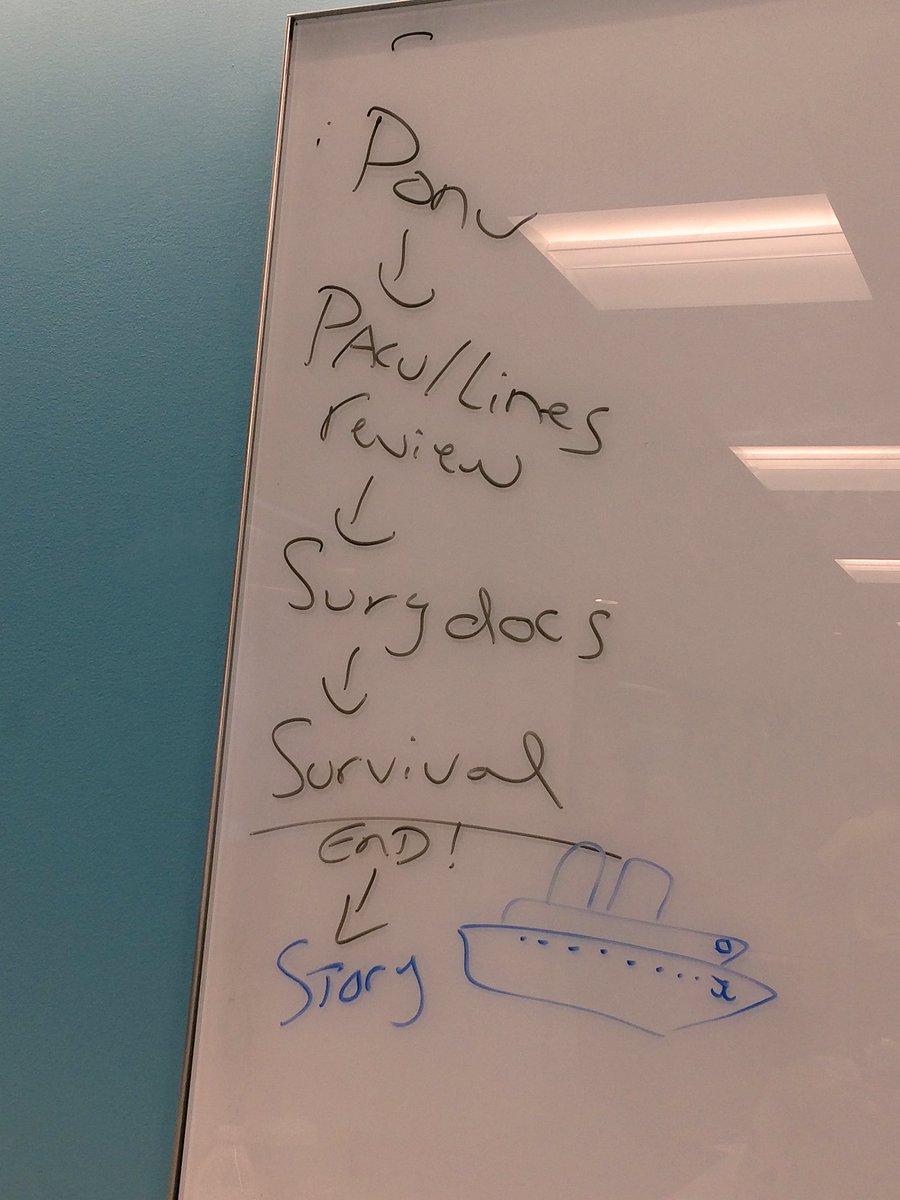 Ponv
↓
PACU/Lines
review
↓
Surg docs
↓
Survival
END!
↓
Story